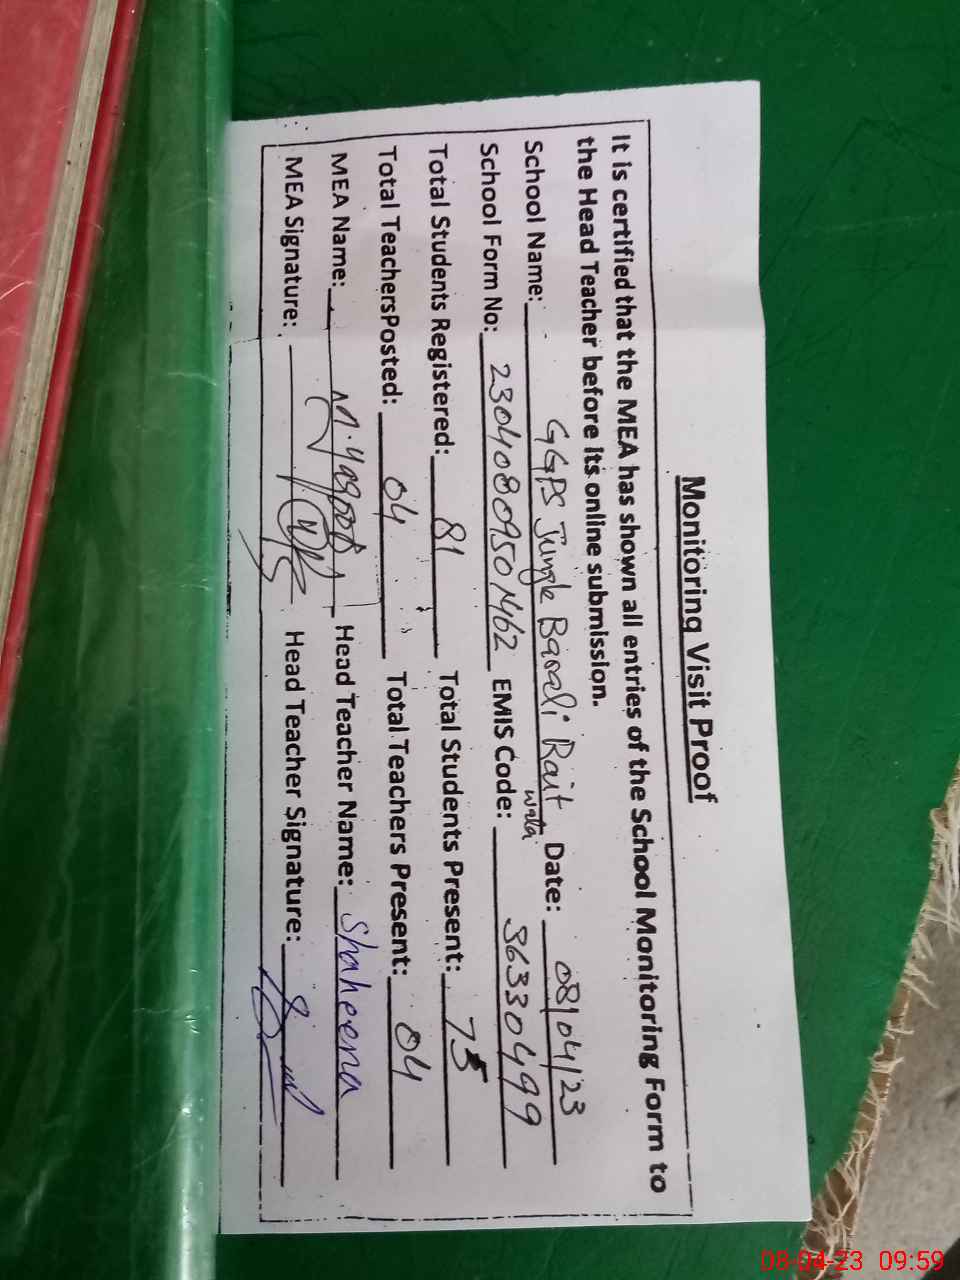 Monitoring Visit Proof
It is certified that the MEA has shown all entries of the School Monitoring Form to
the Head Teacher before its online submission.
School Name: GGPS Jungle Barali Rait wala Date: 08/04/23
School Form No: 23040809501462 EMIS Code: 36330499
Total Students Registered: 81 Total Students Present: 75
Total TeachersPosted: 04 Total Teachers Present: 04
MEA Name: M. Yaqoob Head Teacher Name: Shaheena
MEA Signature: Head Teacher Signature:
08-04-23 09:59